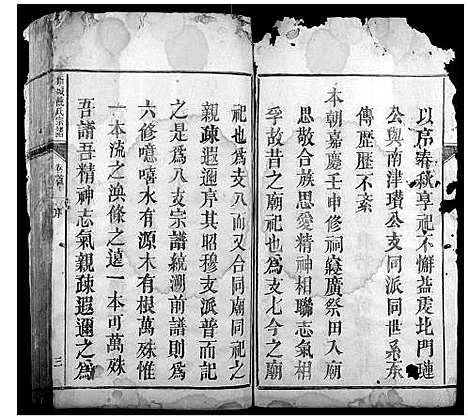 以序春秋享祀不懈益虔北門璉
公與南津瓚公支同派同世系亦
傳歷歷不紊
本朝嘉慶壬申修祠寢廣祭田入廟
思敬合族思愛精神相聯志氣相
孚故昔之廟祀也為支七今之廟
祀也為支八而又合同廟同祀之
親疎遐邇序其昭穆支派普而記
之是為八支宗譜統溯前譜則為
六修噫嘻水有源木有根萬殊惟
一本流之渙條之遠一本可萬殊
吾譜吾精神志氣親疎遐邇之為
氏宗譜
卷首
序
三